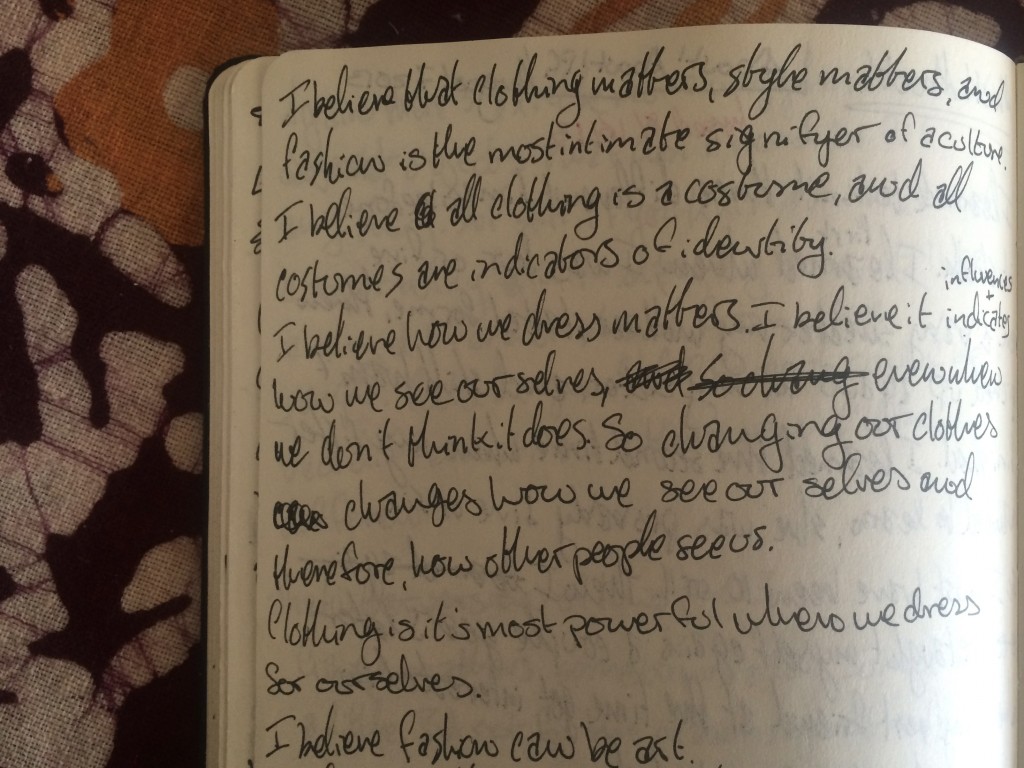 I believe that clothing matters, style matters, and
fashion is the most intimate signifyer of a culture.
I believe all clothing is a costume, and all
costumes are indicators of identity.
influences +
I believe how we dress matters. I believe it indicates
how we see our selves, and so chang even when
we don't think it does. So changing our clothes
changes how we see our selves and
therefore, how other people see us.
Clothing is it's most powerful when we dress
for ourselves.
I believe fashion can be art.